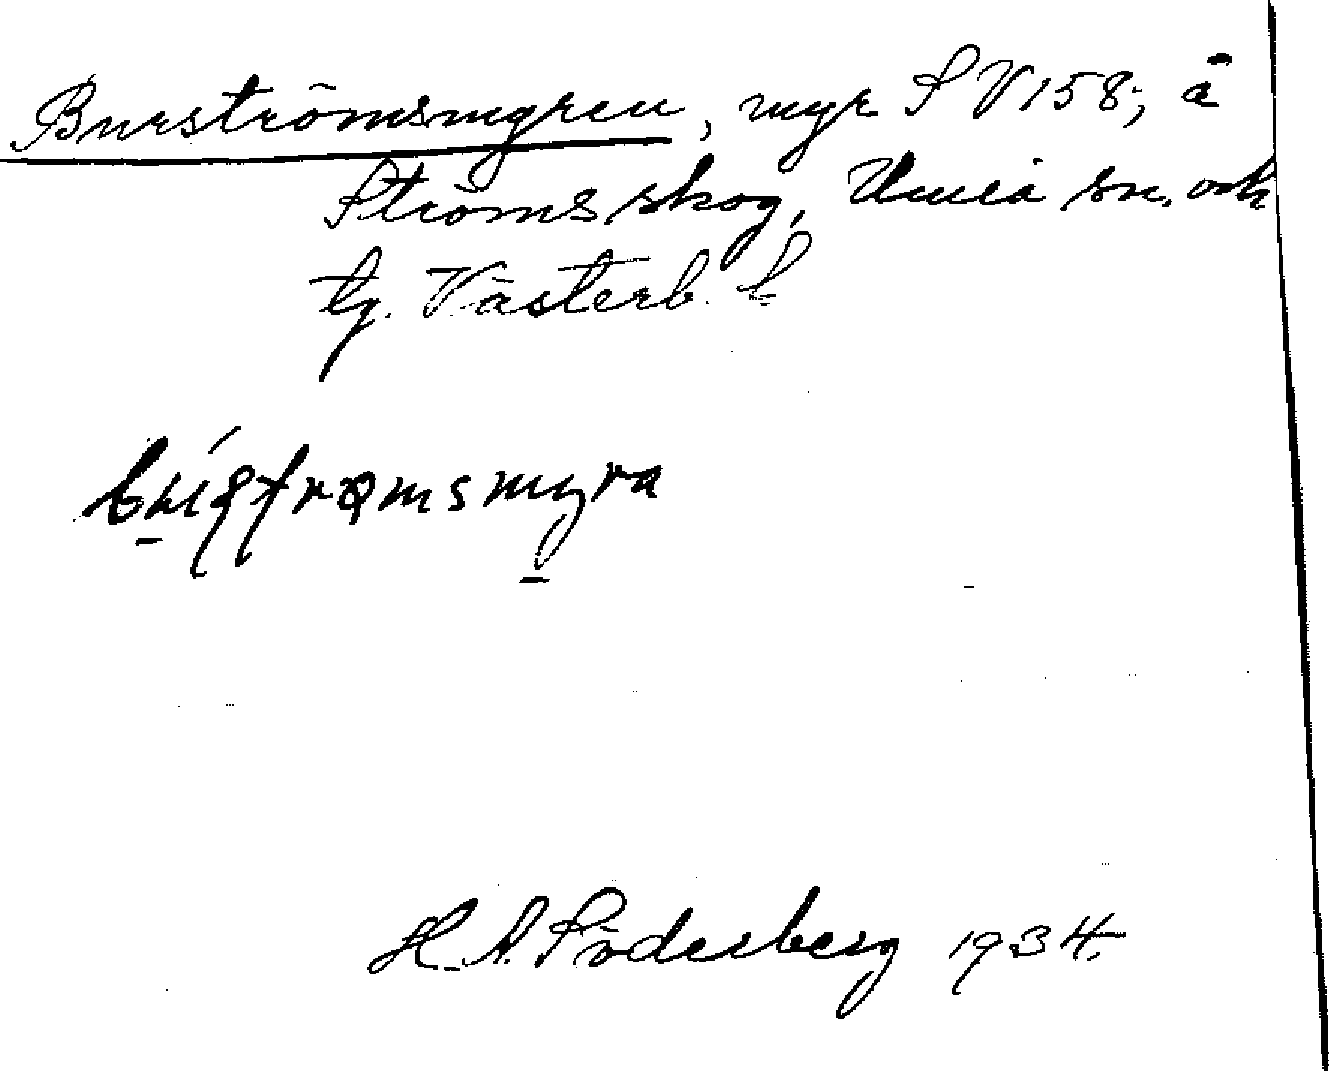 Burströmsmyren, myr S V 158; å
Ströms skog, Umeå sn. och
tg. Västerb. l.
H. A. Söderberg 1934.